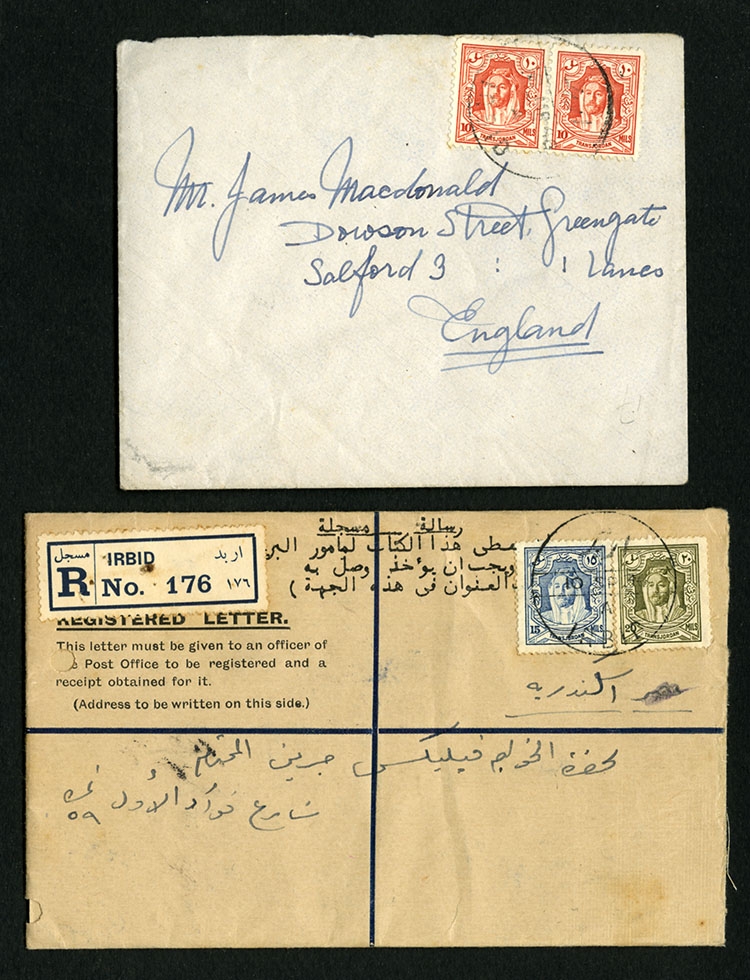 ١٠
10 MILS
TRANSJORDAN
١٠
10 MILS
TRANSJORDAN
Mr. James Macdonald
Dowson Street, Greengate
Salford 3 : : Lancs
England
رسالة مسجلة
هذا الكتاب لمامور البر
ويجب ان يؤخذ وصل به
العنوان في هذه الجهة )
مسجل
R
IRBID
اربد
No. 176
١٧٦
REGISTERED LETTER.
This letter must be given to an officer of
Post Office to be registered and a
receipt obtained for it.
(Address to be written on this side.)
١٥
15 MILS
TRANSJORDAN
٢٠
20 MILS
TRANSJORDAN
اسكندريه
لحضرة الخواجه فيليكس جرين المحترم
شارع فؤاد الأول نمره
٥٩